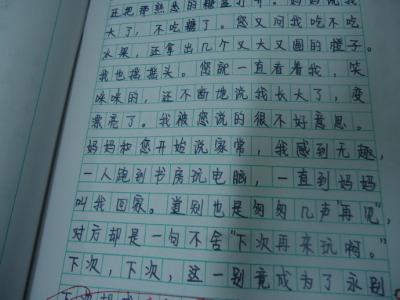 还把那熟悉的糖盒打开。妈妈说我
大了，不吃糖了。您又问我吃不吃
水果，还拿出几个又大又圆的橙子。
我也摇摇头。您就一直看着我，笑
咪咪的，还不断地说我长大了，变
漂亮了。我被您说的很不好意思。
妈妈和您开始说家常，我感到无趣，
一人跑到书房玩电脑，一直到妈妈
叫我回家。道别也是匆匆几声“再见”，
对方却是一句不舍“下次再来玩啊。”
下次，下次，这一别竟成为了永别